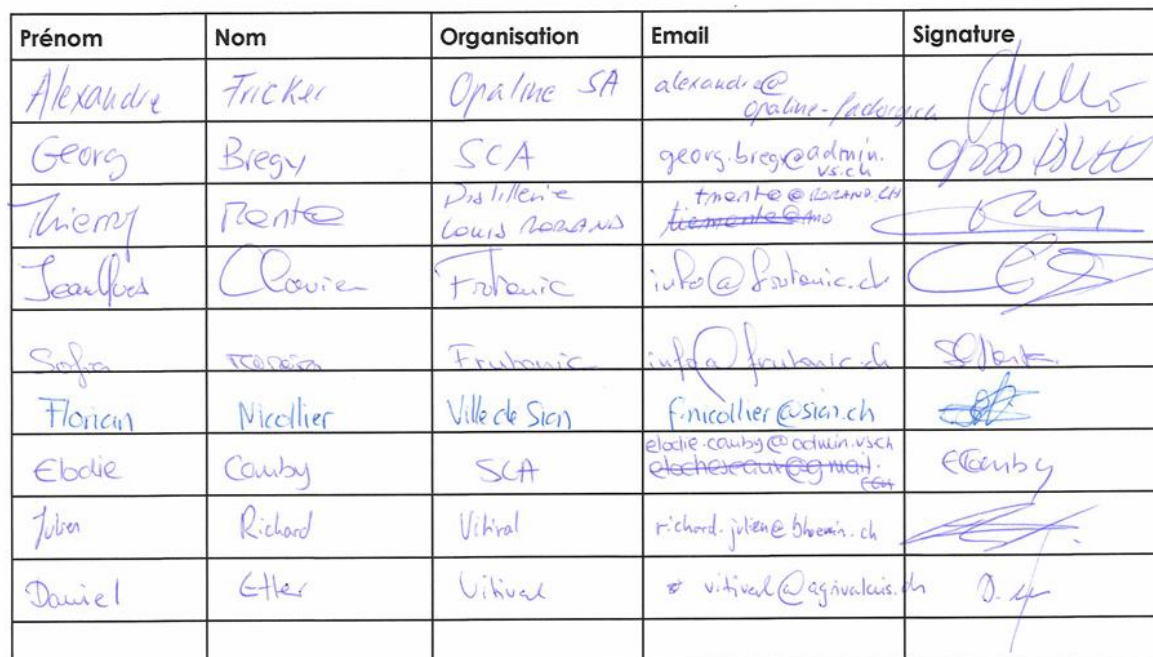 Prénom Nom Organisation Email Signature
Alexandre Fricker Opaline SA alexandre@
opaline-factory.ch
Georg Bregy SCA georg.bregy@admin.
vs.ch
Thierry Distillerie tmente@MORAND.CH
Louis MORAND
Jean-Yves Clavien Frutonic info@frutonic.ch
Sofia Frutonic info@frutonic.ch
Florian Nicollier Ville de Sion f.nicollier@sion.ch
elodie.camby@admin.vs.ch
Elodie Camby SCA ECamby
Julien Richard Vitival
Daniel Etter Vitival vitival@agrivalais.ch